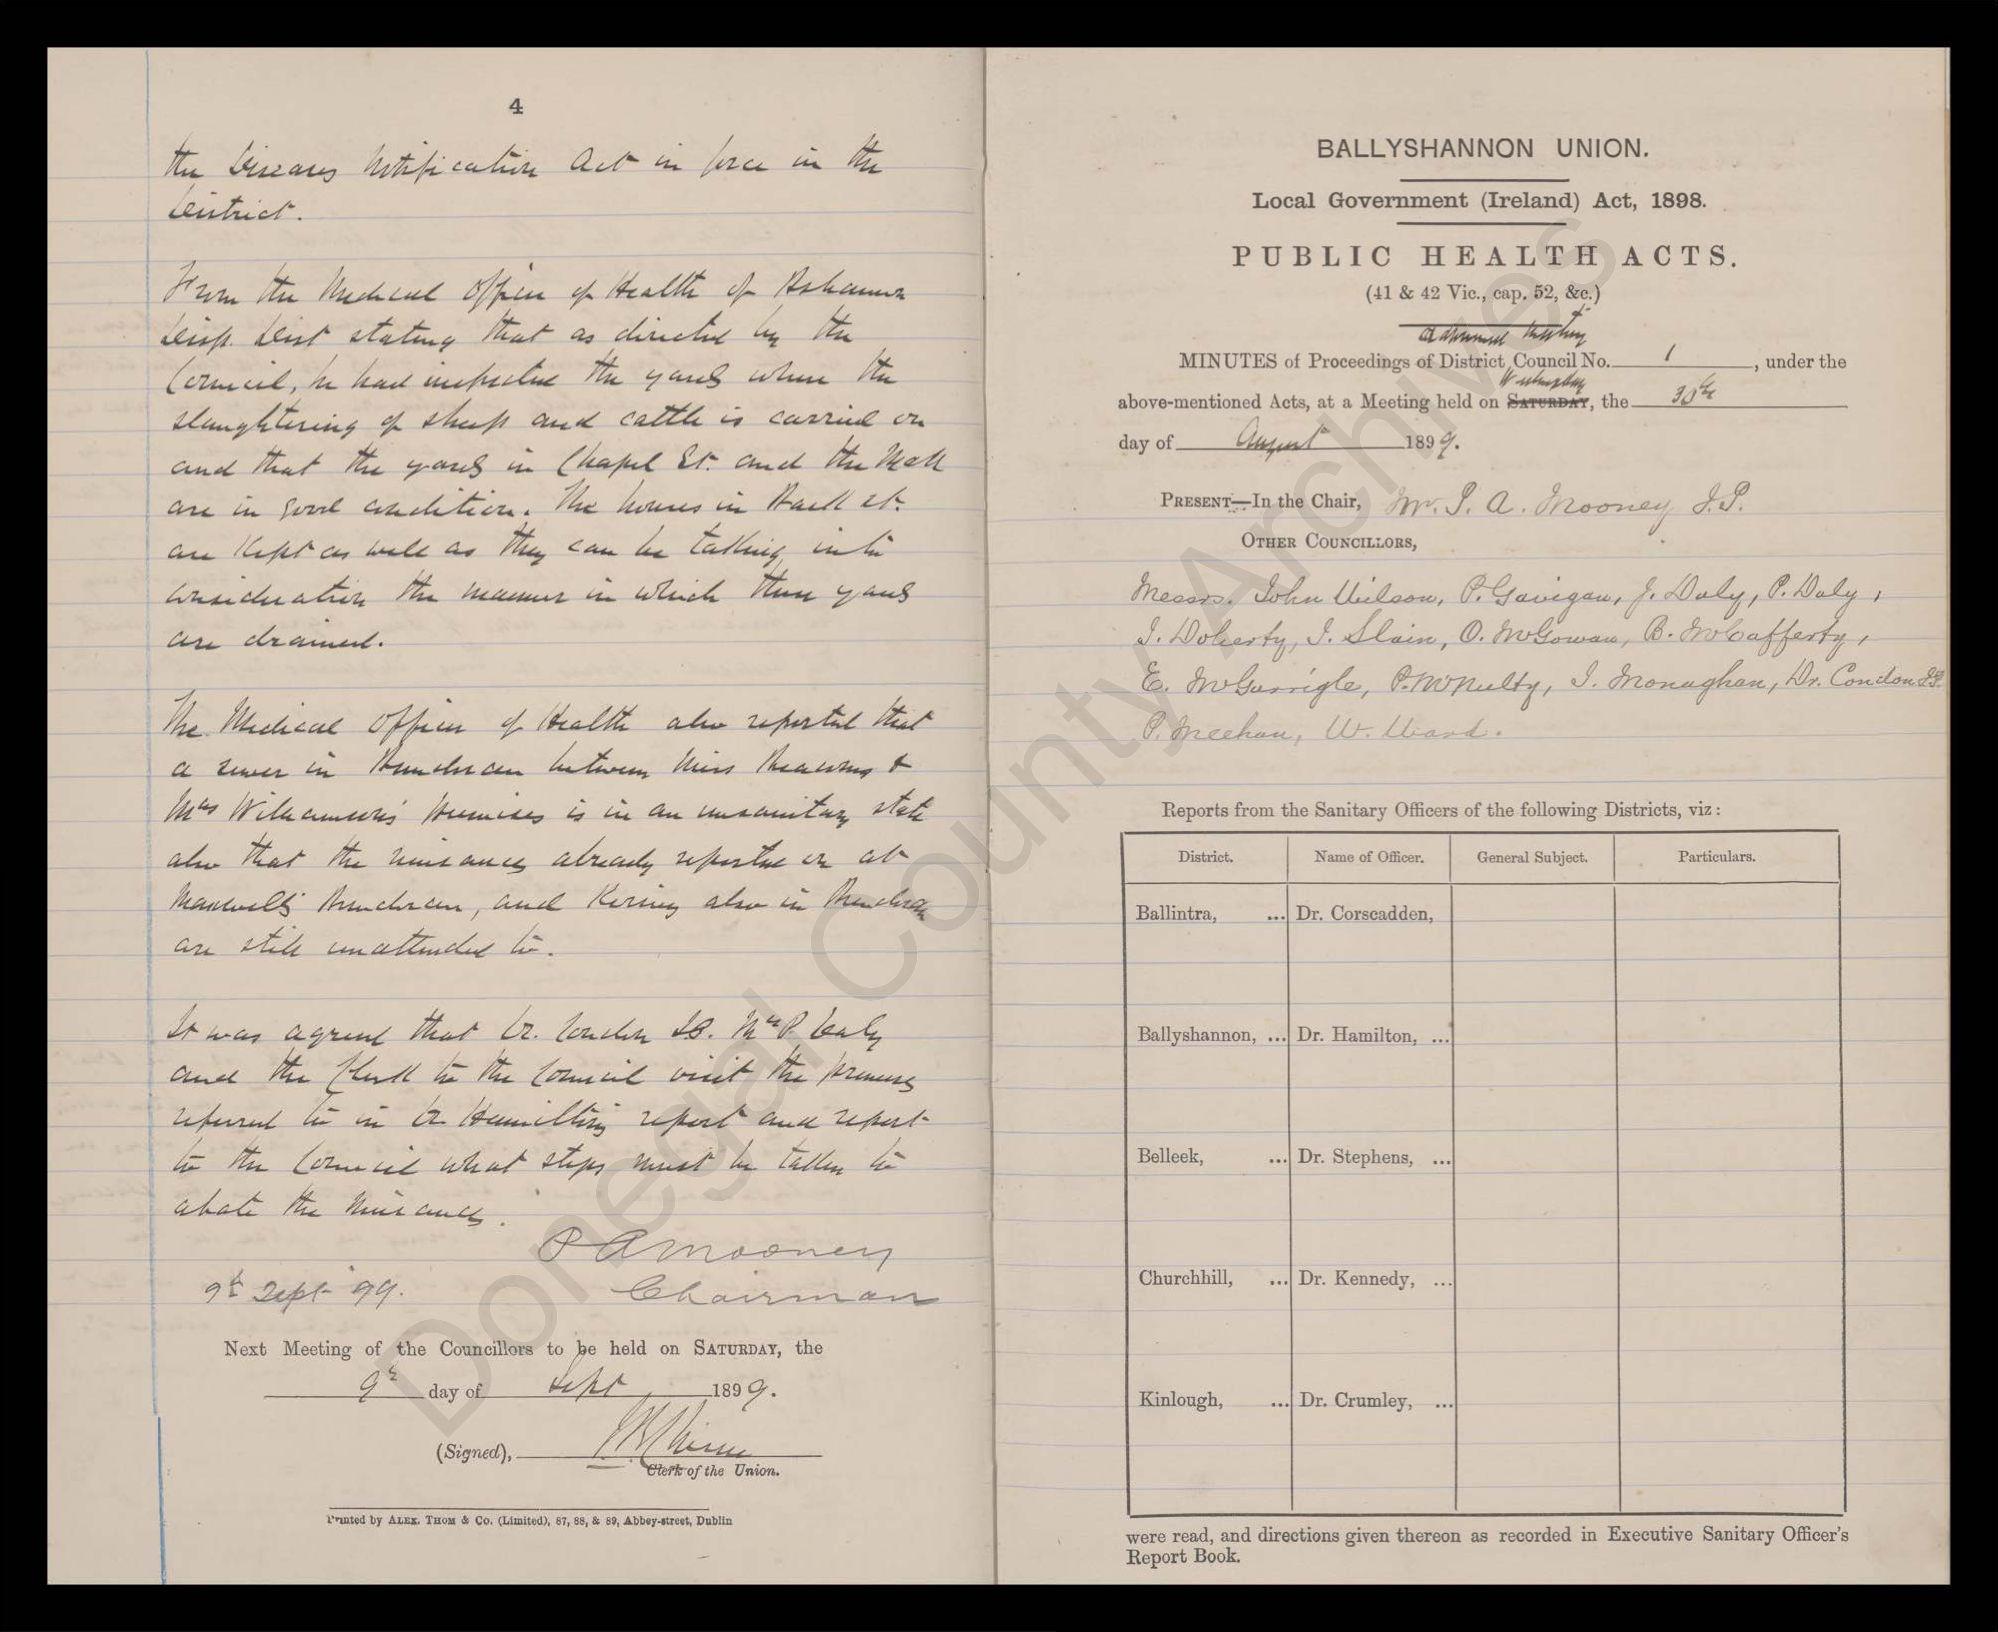 4
the Diseases Notification Act in force in the
District.
From the Medical Officer of Health of
Disp. Dist stating that as directed by the
Council, he had inspected the yards where the
slaughtering of sheep and cattle is carried on
and that the yards in Chapel St. and the Mall
are in good condition. The houses in Back St.
are kept as well as they can be talking into
consideration the manner in which these yards
are drained.
The Medical Officer of Health also reported that
a sewer in Bundoran between Miss &
Mrs Williamson's premises is in an unsanitary state
also that the nuisances already reported on at
Maxwell's Bundoran, and also in Bundoran
are still unattended to.
It was agreed that Dr. Condon J.P. Mr P. Daly
and the Clerk to the Council visit the premises
referred to in Dr Hamilton's report and report
to the Council what steps must be taken to
abate the nuisances.
P A Mooney
9th Sept 99. Chairman
Next Meeting of the Councillors to be held on SATURDAY, the
9th day of Sept 1899.
(Signed),
Clerk of the Union.
Printed by ALEX. THOM & Co. (Limited), 87, 88, & 89, Abbey-street, Dublin
BALLYSHANNON UNION.
Local Government (Ireland) Act, 1898.
PUBLIC HEALTH ACTS.
(41 & 42 Vic., cap. 52, &c.)
Adjourned Meeting
MINUTES of Proceedings of District Council No. 1, under the
Wednesday
above-mentioned Acts, at a Meeting held on SATURDAY, the 30th
day of August 1899.
PRESENT—In the Chair, Mr. P. A. Mooney J.P.
OTHER COUNCILLORS,
Messrs. John Wilson, P. Gavigan, J. Daly, P. Daly,
J. Doherty, J. Slain, O. McGowan, B. McCafferty,
E. McGarrigle, P. McNulty, J. Monaghan, Dr. Condon J.P.
P. Meehan, W. Ward.
Reports from the Sanitary Officers of the following Districts, viz:
District. Name of Officer. General Subject. Particulars.
Ballintra, ... Dr. Corscadden,
Ballyshannon, ... Dr. Hamilton, ...
Belleek, ... Dr. Stephens, ...
Churchhill, ... Dr. Kennedy, ...
Kinlough, ... Dr. Crumley, ...
were read, and directions given thereon as recorded in Executive Sanitary Officer's
Report Book.
Donegal County Archives